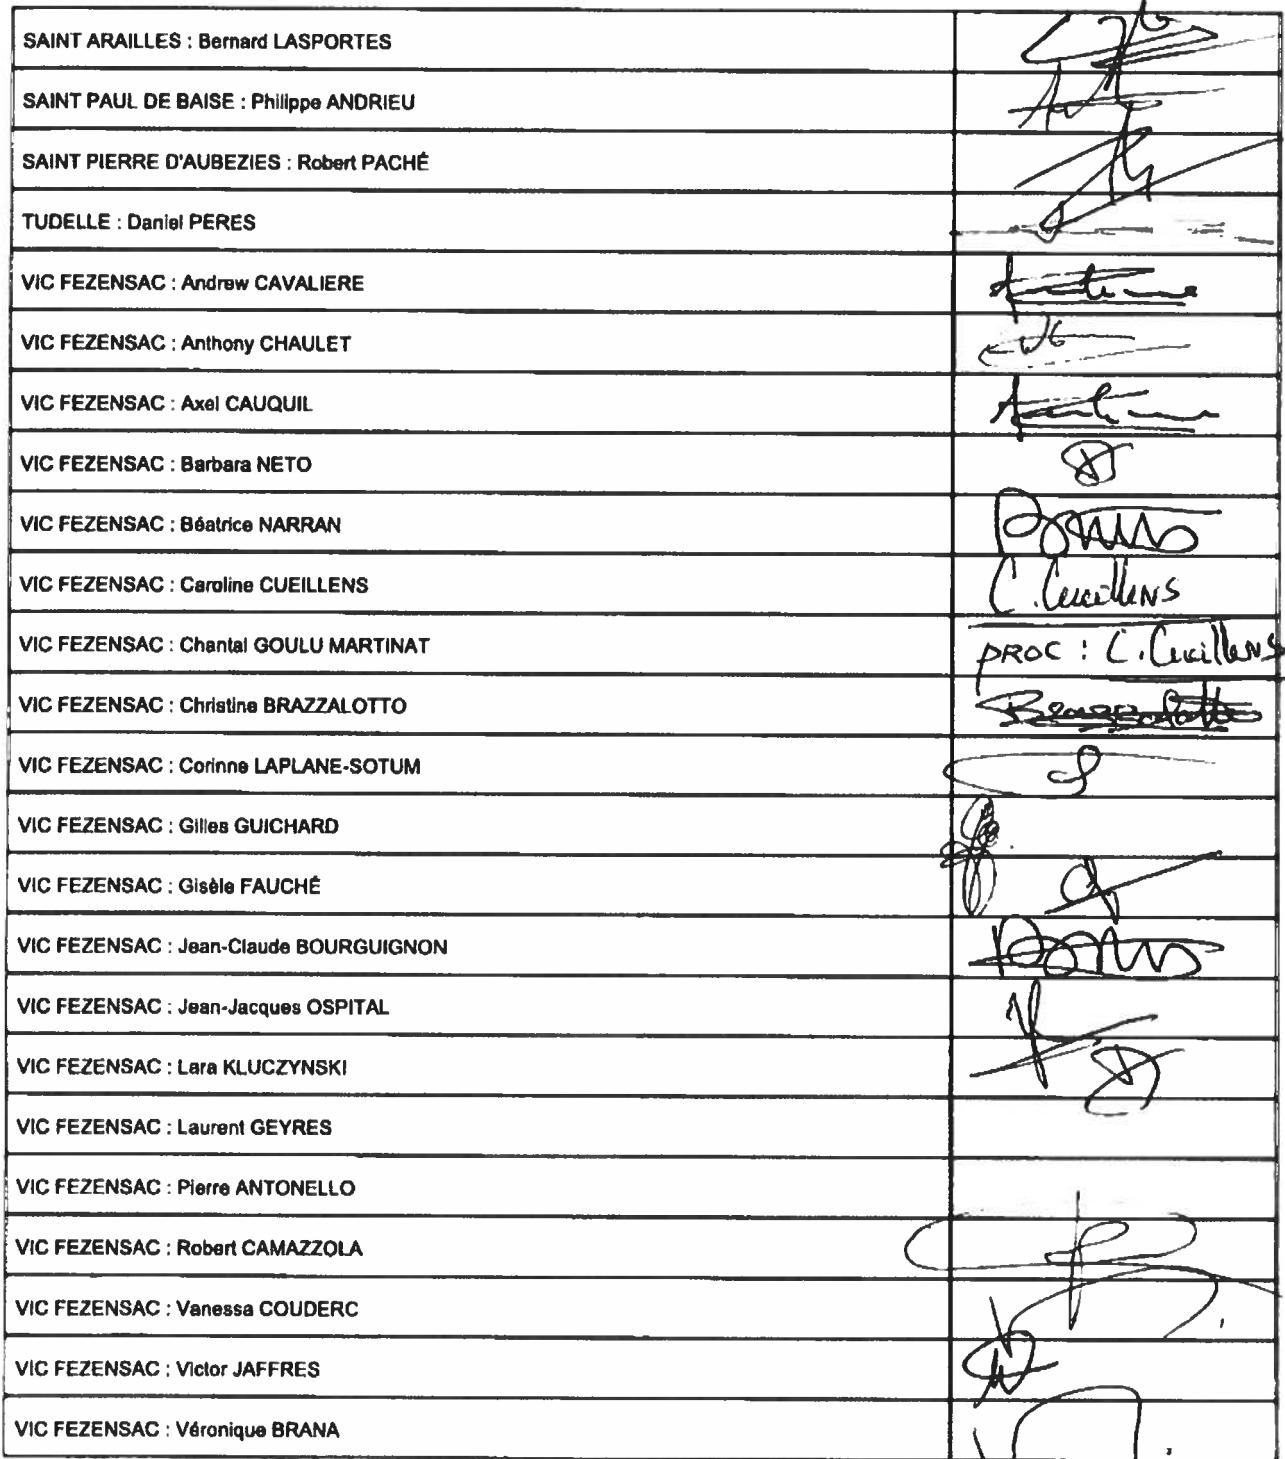 SAINT ARAILLES : Bernard LASPORTES
SAINT PAUL DE BAISE : Philippe ANDRIEU
SAINT PIERRE D'AUBEZIES : Robert PACHÉ
TUDELLE : Daniel PERES
VIC FEZENSAC : Andrew CAVALIERE
VIC FEZENSAC : Anthony CHAULET
VIC FEZENSAC : Axel CAUQUIL
VIC FEZENSAC : Barbara NETO
VIC FEZENSAC : Béatrice NARRAN
VIC FEZENSAC : Caroline CUEILLENS C. Cueillens
VIC FEZENSAC : Chantal GOULU MARTINAT PROC : C. Cueillens
VIC FEZENSAC : Christine BRAZZALOTTO Brazzalotto
VIC FEZENSAC : Corinne LAPLANE-SOTUM
VIC FEZENSAC : Gilles GUICHARD
VIC FEZENSAC : Gisèle FAUCHÉ
VIC FEZENSAC : Jean-Claude BOURGUIGNON
VIC FEZENSAC : Jean-Jacques OSPITAL
VIC FEZENSAC : Lara KLUCZYNSKI
VIC FEZENSAC : Laurent GEYRES
VIC FEZENSAC : Pierre ANTONELLO
VIC FEZENSAC : Robert CAMAZZOLA
VIC FEZENSAC : Vanessa COUDERC
VIC FEZENSAC : Victor JAFFRES
VIC FEZENSAC : Véronique BRANA